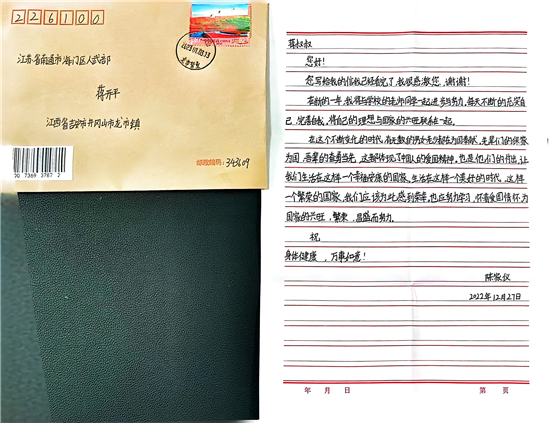 226100
江苏省南通市海门区人武部
蒋开平
江西省吉安市井冈山市龙市镇
邮政编码：343609
蒋叔叔
您好！
您写给我的信我已经看完了，我很感激您，谢谢！
在新的一年，我将与学校的老师同学一起进步与努力，每天不断的充实自
己，完善自我，将自己的理想与国家的兴旺联系在一起。
在这个不断变化的时代，有无数的男女老少都在为国奉献，先辈们的保家
为国，吾辈的奋勇当先，这都体现了中国人的爱国精神，也是他们的付出，让
我们生活在这样一个幸福安康的国家，生活在这样一个美好的时代，这样
一个繁荣的国家，我们应该为此感到荣幸，也应努力学习，怀着爱国情怀为
国家的兴旺，繁荣，昌盛而努力。
祝
身体健康，万事如意！
陈家仪
2022年12月27日
年 月 日
第 页